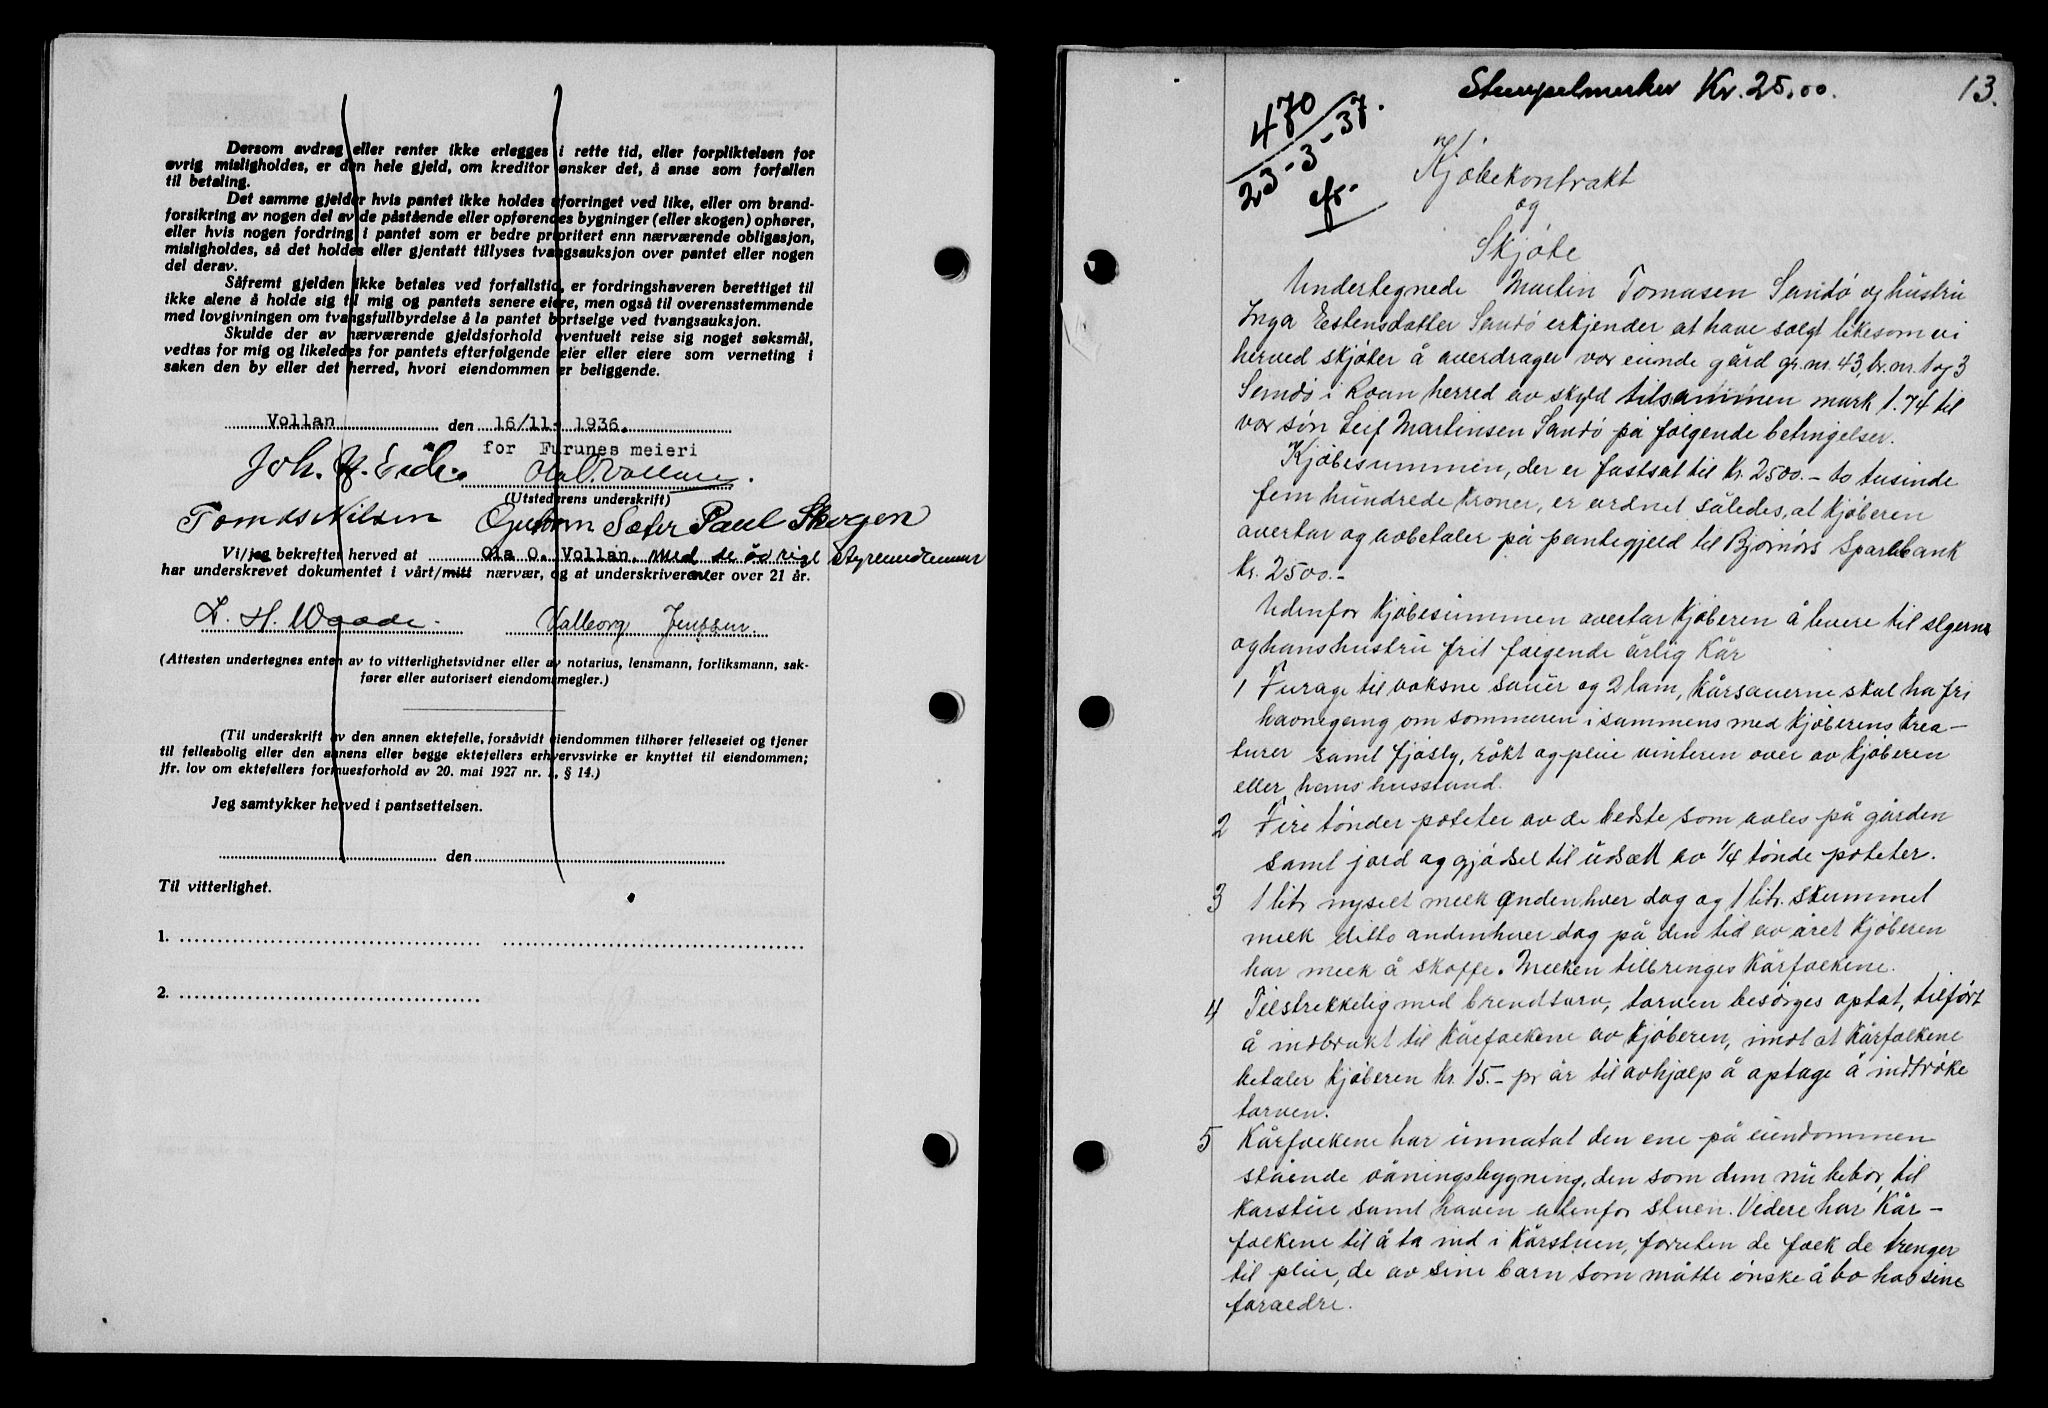 Dersom avdrag eller renter ikke erlegges i rette tid, eller forpliktelsen for
øvrig misligholdes, er den hele gjeld, om kreditor ønsker det, å anse som forfallen
til betaling.
Det samme gjelder hvis pantet ikke holdes uforringet ved like, eller om brand-
forsikring av nogen del av de påstående eller opførendes bygninger (eller skogen) ophører,
eller hvis nogen fordring i pantet som er bedre prioritert enn nærværende obligasjon,
misligholdes, så det holdes eller gjentatt tillyses tvangsauksjon over pantet eller nogen
del derav.
Såfremt gjelden ikke betales ved forfallstid, er fordringshaveren berettiget til
ikke alene å holde sig til mig og pantets senere eiere, men også til overensstemmende
med lovgivningen om tvangsfullbyrdelse å la pantet bortselge ved tvangsauksjon.
Skulde der av nærværende gjeldsforhold eventuelt reise sig noget søksmål,
vedtas for mig og likeledes for pantets efterfølgende eier eller eiere som verneting i
saken den by eller det herred, hvori eiendommen er beliggende.
Vollan den 16/11- 1936.
for Furunes meieri
Joh. H. Eide. Ola O. Vollan.
(Utstederens underskrift)
Tomas Nilsen Sæter Paul Skogen
Vi/jeg bekrefter herved at Ola O. Vollan, med de övrige styremedlemmer
har underskrevet dokumentet i vårt/mitt nærvær, og at underskriverne er over 21 år.
H. Waade. Valborg Jenssen.
(Attesten undertegnes enten av to vitterlighetsvidner eller av notarius, lensmann, forliksmann, sak-
fører eller autorisert eiendomsmegler.)
(Til underskrift av den annen ektefelle, forsåvidt eiendommen tilhører felleseiet og tjener
til fellesbolig eller den annens eller begge ektefellers erhvervsvirke er knyttet til eiendommen;
jfr. lov om ektefellers formuesforhold av 20. mai 1927 nr. 1, § 14.)
Jeg samtykker herved i pantsettelsen.
den
Til vitterlighet.
1.
2.
Stempelmerker Kr. 25,00. 13.
470
23-3-37.
Kjøbekontrakt
og
Skjøte
Undertegnede Martin Tomasen Sandø og hustru
Inga Estensdatter Sandø erkjender at have solgt likesom vi
herved skjøter å averdrager vor eiende gård gr.nr. 43, br.nr. 1 og 3
Sandø i Roan herred av skyld tilsammen mark 1.74 til
vor søn Leif Martinsen Sandø på følgende betingelser.
Kjøbesummen, der er fastsat til Kr. 2500.- to tusinde
fem hundrede kroner, er ordnet således, at kjøberen
overtar og avbetaler på pantegjeld til Bjørnørs Sparebank
Kr. 2500.-
Udenfor kjøbesummen overtar kjøberen å levere til slgerne
og hans hustru frit følgende årlig Kår
1 Furage til voksne sauer og 2 lam, Kårsauerne skal ha fri
havnegang om sommeren i sammens med kjøberens krea-
turer samt fjøsly, røkt og pleie vinteren over av kjøberen
eller hans husstand.
2 Fire tønder poteter av de bedste som avles på gården
samt jord og gjødsel til udsæd av 1/4 tønde poteter.
3 1 litr nysilt melk anden hver dag og 1 litr. skummet
melk ditto andenhver dag på den tid av året kjøberen
har melk å skaffe. Melken tilbringes Kårfolkene.
4 Tilstrekkelig med brendtorv, torven besørges optat, tilført
å indbrakt til Kårfolkene av kjøberen, imot at Kårfolkene
betaler kjøberen kr. 15.- pr år til avhjælp å optage å indtrøke
torven.
5 Kårfolkene har unnatat den ene på eiendommen
stående våningsbygning, den som dem nu bebor, til
karstue samt haven utenfor stuen. Videre har Kår-
folkene til å ta ind i Kårstuen, foruten de folk de trenger
til pleie, de av sine barn som måtte ønske å bo hos sine
foraedre.